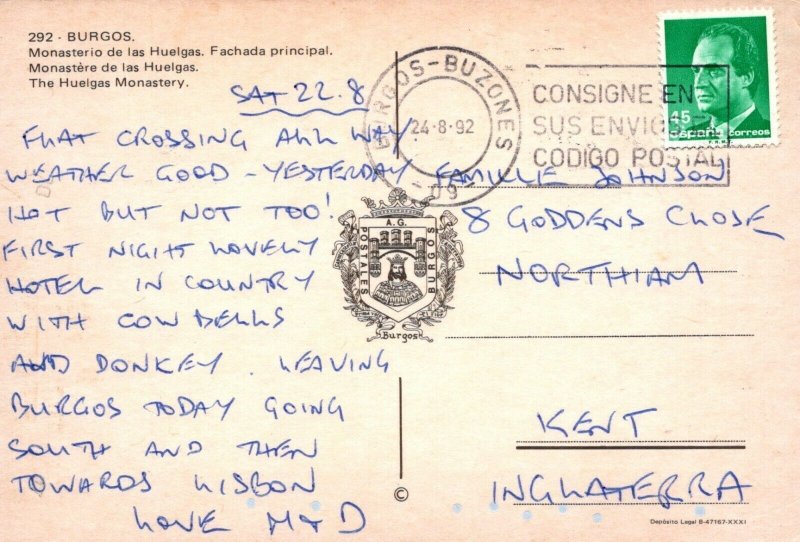 292 - BURGOS.
Monasterio de las Huelgas. Fachada principal.
Monastère de las Huelgas.
The Huelgas Monastery.
SAT 22.8
FLAT CROSSING ALL WAY
WEATHER GOOD - YESTERDAY
HOT BUT NOT TOO!
FIRST NIGHT LOVELY
HOTEL IN COUNTRY
WITH COW BELLS
AND DONKEY. LEAVING
BURGOS TODAY GOING
SOUTH AND THEN
TOWARDS LISBON
LOVE M & D
BURGOS-BUZONES
24-8-92
-09-
CONSIGNE EN
SUS ENVIOS
CODIGO POSTAL
45
España correos
A.G.
POSTALES
BURGOS
Burgos
©
FAMILLE JOHNSON
8 GODDENS CLOSE
NORTHIAM
KENT
INGLATERRA
Depósito Legal B-47167-XXXI